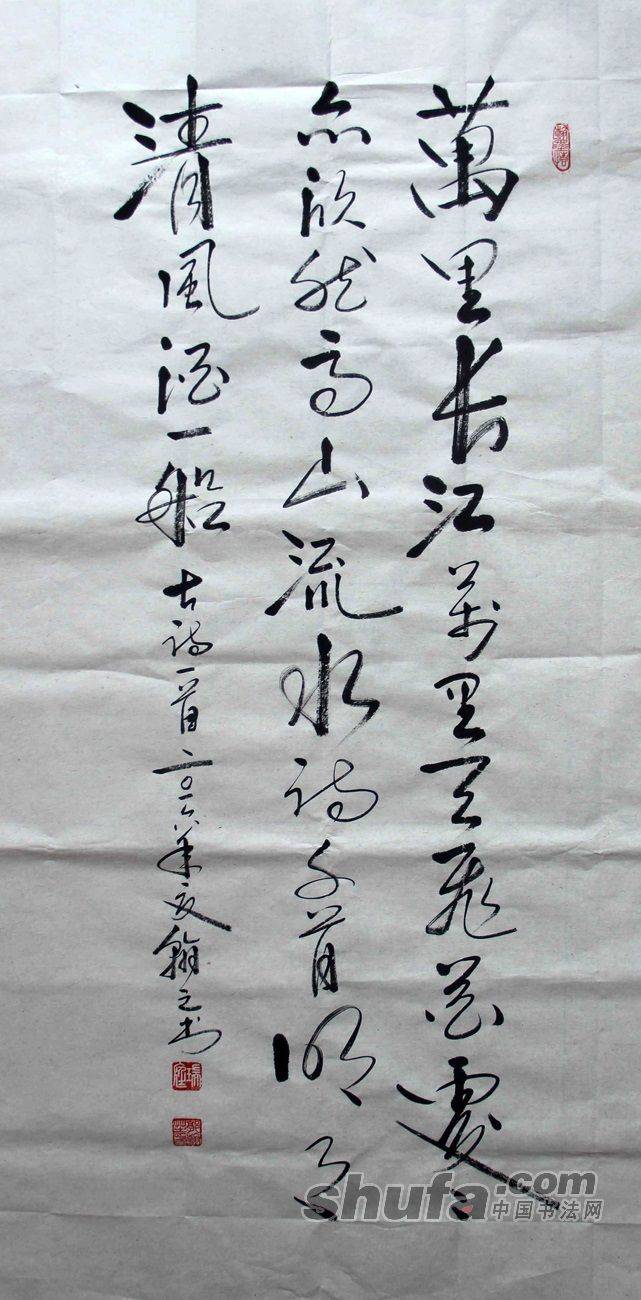 萬里長江萬里天飛花處〻
亦欣然高山流水詩千首明月
清風酒一船 古詩一首二〇一六年夏翰之書
shufa.com
中国书法网